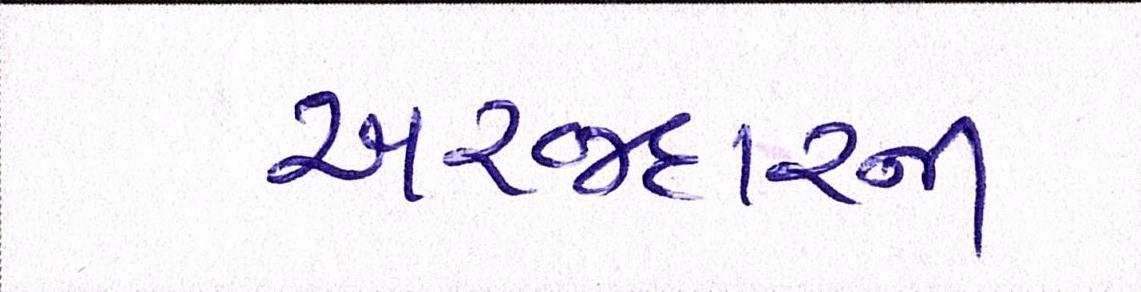 અરજદારની